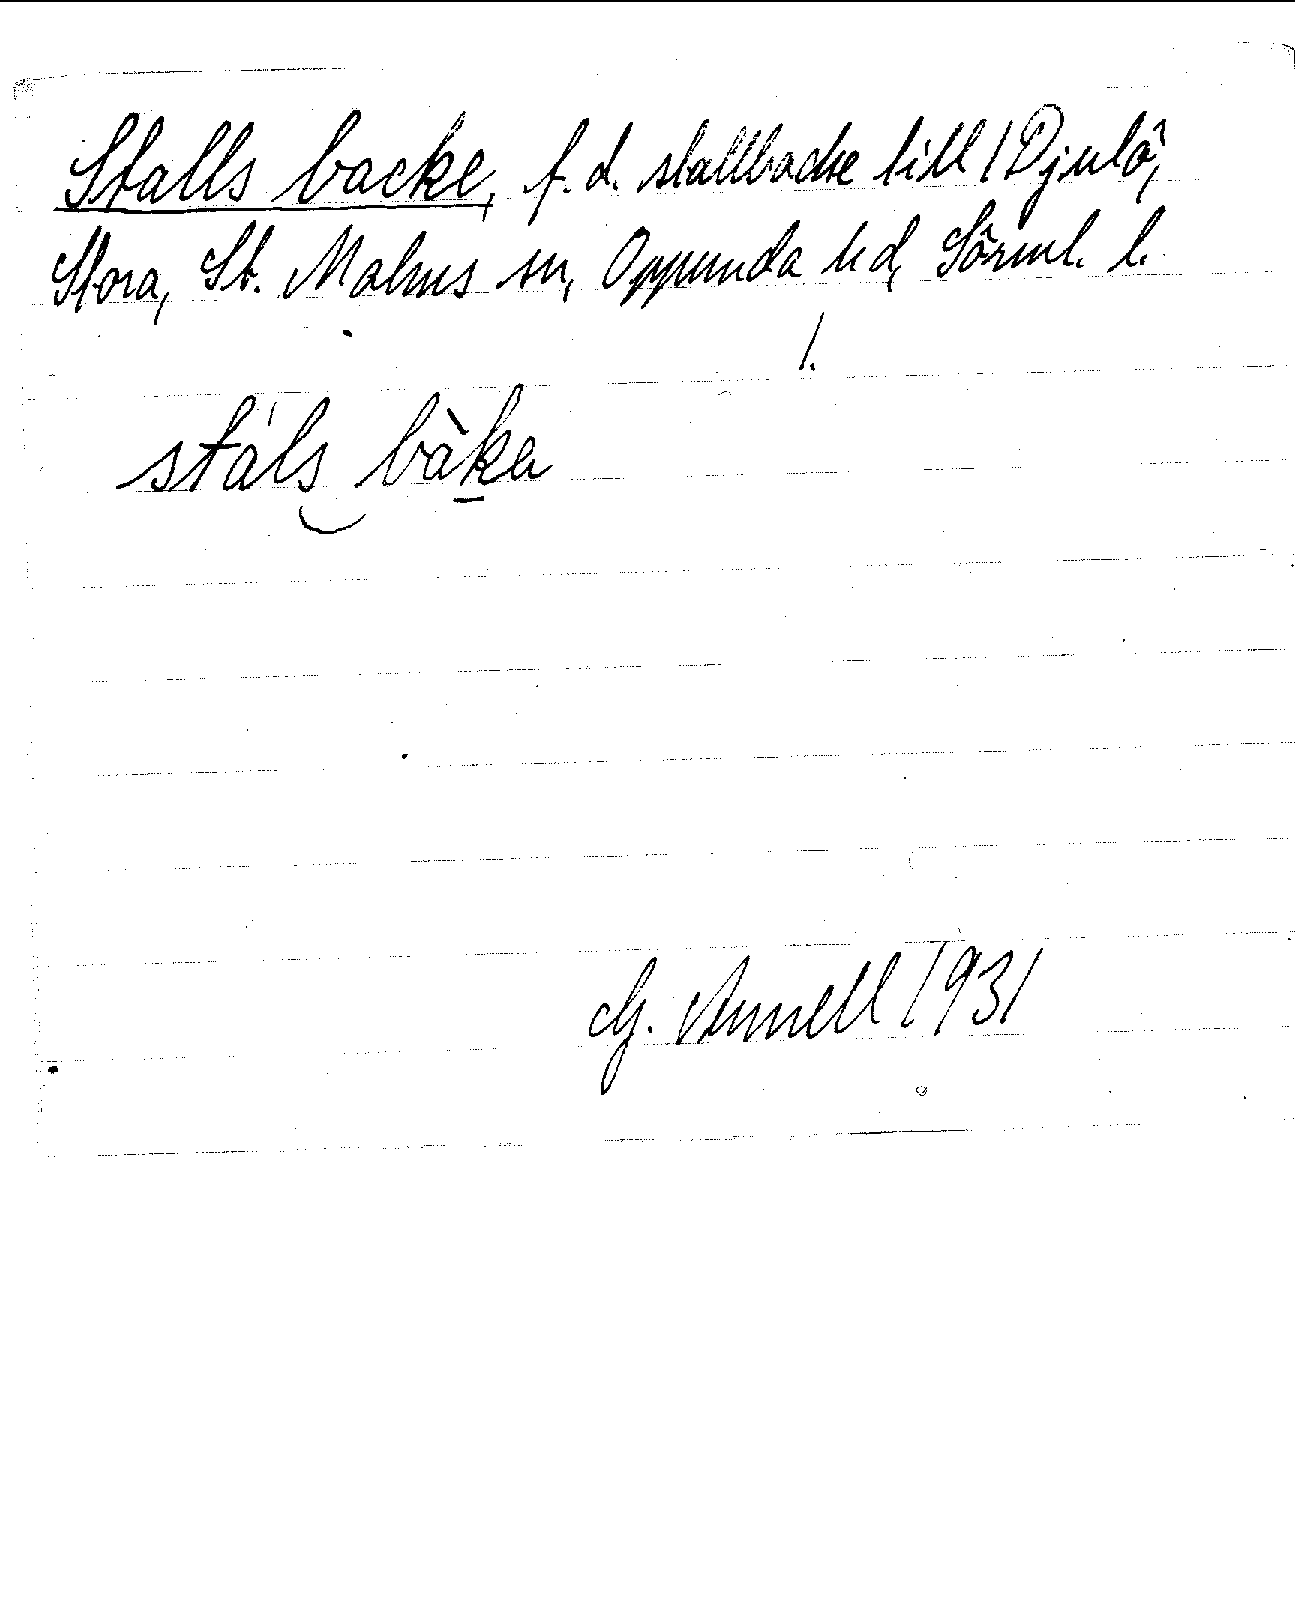 Stalls backe, f.d. stallbacke till 1 Djulö,
Stora, St. Malms sn, Oppunda hd, Sörml. l.
1.
stáls bàka
G. Annell 1931